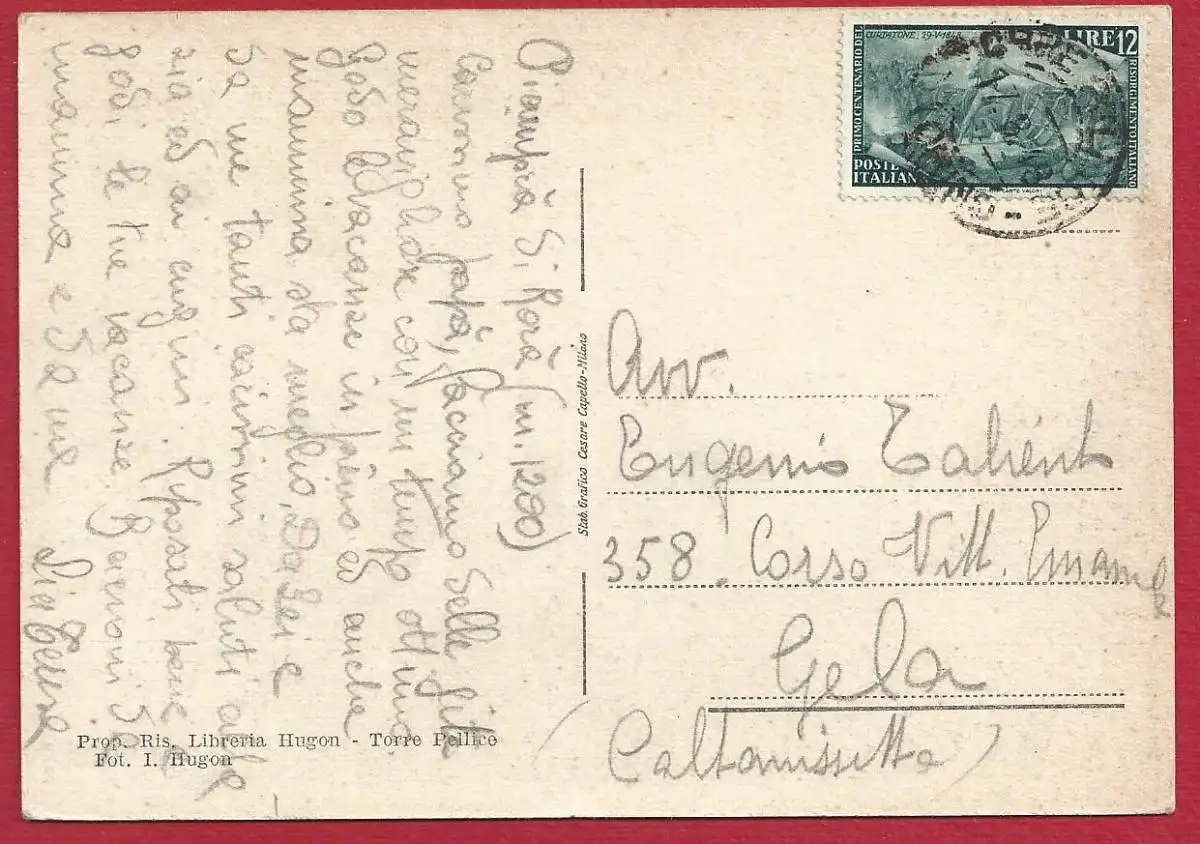 Pianprà di Rorà (m. 1200)
Carissimo papà, facciamo delle gite
meravigliose con un tempo ottimo
godo le vacanze in pieno ed anche
mammina sta meglio. Da lei e
da me tanti carissimi saluti alla
zia ed ai cugini. Riposati bene e
godi le tue vacanze. Bacioni da
mamma e da me
Stab. Grafico Cesare Capello-Milano
Prop. Ris. Libreria Hugon - Torre Pellice
Fot. I. Hugon
PRIMO CENTENARIO DEL
RISORGIMENTO ITALIANO
CURTATONE, 29-V-1848
LIRE 12
POSTE
ITALIANE
Avv.
Eugenio
358. Corso Vitt. Emanuele
Gela
(Caltanissetta)